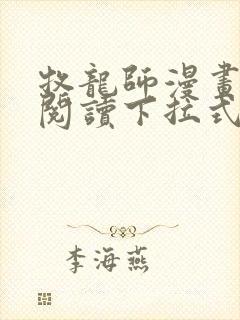 牧龍師漫畫
閱讀下拉式
李海燕